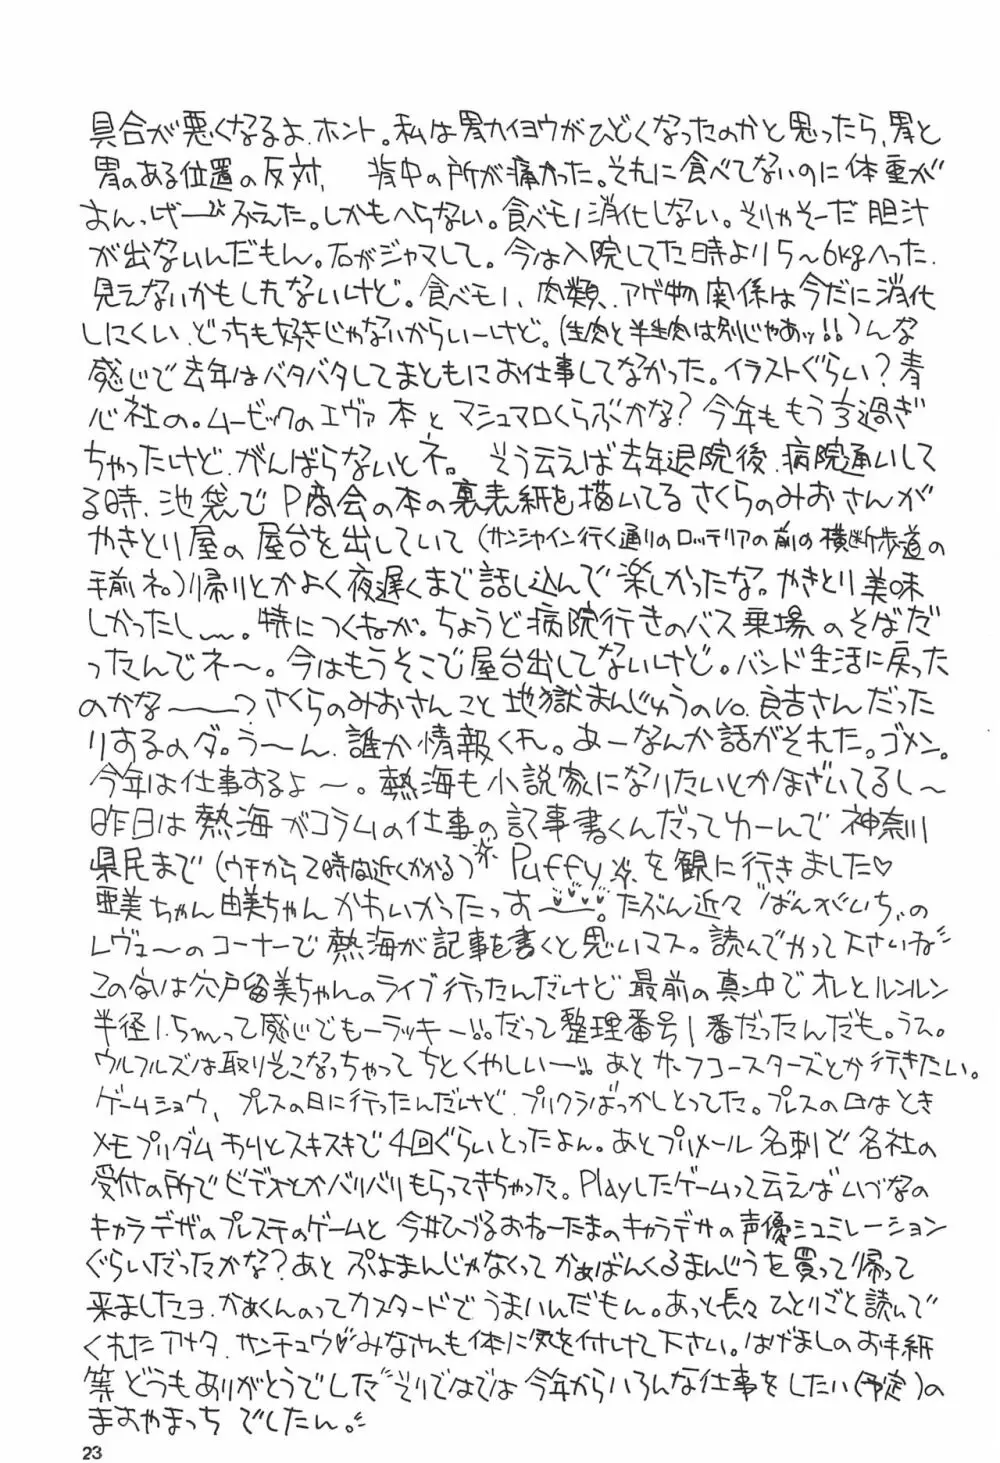 具合が悪くなるよ、ホント。私は胃カイヨウがひどくなったのかと思ったら、胃と
胃のある位置の反対、背中の所が痛かった。それに食べてないのに体重が
よんっげーふえた。しかもへらない。食べモノ消化しない。そりゃそーだ胆汁
が出ないんだもん。石がジャマして。今は入院してた時より5〜6kgへった、
見えないかもしれないけど。食べモノ、肉類、アゲ物関係は今だに消化
しにくい、どっちも好きじゃないからいーけど。(生肉と半生肉は別じゃあッ!!)んな
感じで去年はバタバタしてまともにお仕事してなかった。イラストぐらい?青
心社の。ムービックのエヴァ本とマシュマロくらぶかな?今年ももう⅓過ぎ
ちゃったけど、がんばらないとネ。そう云えば去年退院後、病院通いして
る時、池袋でP商会の本の裏表紙を描いてるさくらのみおさんが
やきとり屋の屋台を出していて(サンシャイン行く通りのロッテリアの前の横断歩道の
手前ネ。)帰りとかよく夜遅くまで話し込んで楽しかったな。やきとり美味
しかったし〜。特につくねが。ちょうど病院行きのバス乗場のそばだ
ったんでネ〜。今はもうそこで屋台出してないけど。バンド生活に戻った
のかな〜?さくらのみおさんこと地獄まんじゅうのVo.良吉さんだった
りするのダ。う〜ん、誰か情報くれ。あーなんか話がそれた。ゴメン。
今年は仕事するよ〜。熱海も小説家になりたいとかほざいてるし〜
昨日は熱海がコラムの仕事の記事書くんだってゆーんで神奈川
県民まで(ウチから2時間近くかかる)Puffyを観に行きました♡
亜美ちゃん由美ちゃんかわいかったっす〜♡。たぶん近々"ばんがいち"の
レヴューのコーナーで熱海が記事を書くと思いマス。読んでやって下さいね
この前は宍戸留美ちゃんのライブ行ったんだけど最前の真ン中でオレとルンルン
半径1.5mって感じでもーラッキー!!だって整理番号1番だったんだも。うス。
ウルフルズは取りそこなっちゃってちとくやしいー!!あとサーフコースターズとか行きたい。
ゲームショウ、プレスの日に行ったんだけど、プリクラばっかしとってた。プレスの日はとき
メモプリダムおりとスキスキで4回ぐらいとったよん。あとプリメール名刺で各社の
受付の所でビデオとかバリバリもらってきちゃった。Playしたゲームって云えばいづなの
キャラデザのプレステのゲームと今井ひづるおねーたまのキャラデザの声優シュミレーション
ぐらいだったかな?あとぷよまんじゃなくってかぁばんくるまんじうを買って帰って
来ましたヨ、かぁくんのってカスタードでうまいんだもん。あっと長々ひとりごと読んで
くれたアナタ、カンチュウ♡みなさんも体に気を付けて下さい。はげましのお手紙
等どうもありがとうでした そりではでは今年からいろんな仕事をしたい(予定)の
まおやまっちでしたん。
23